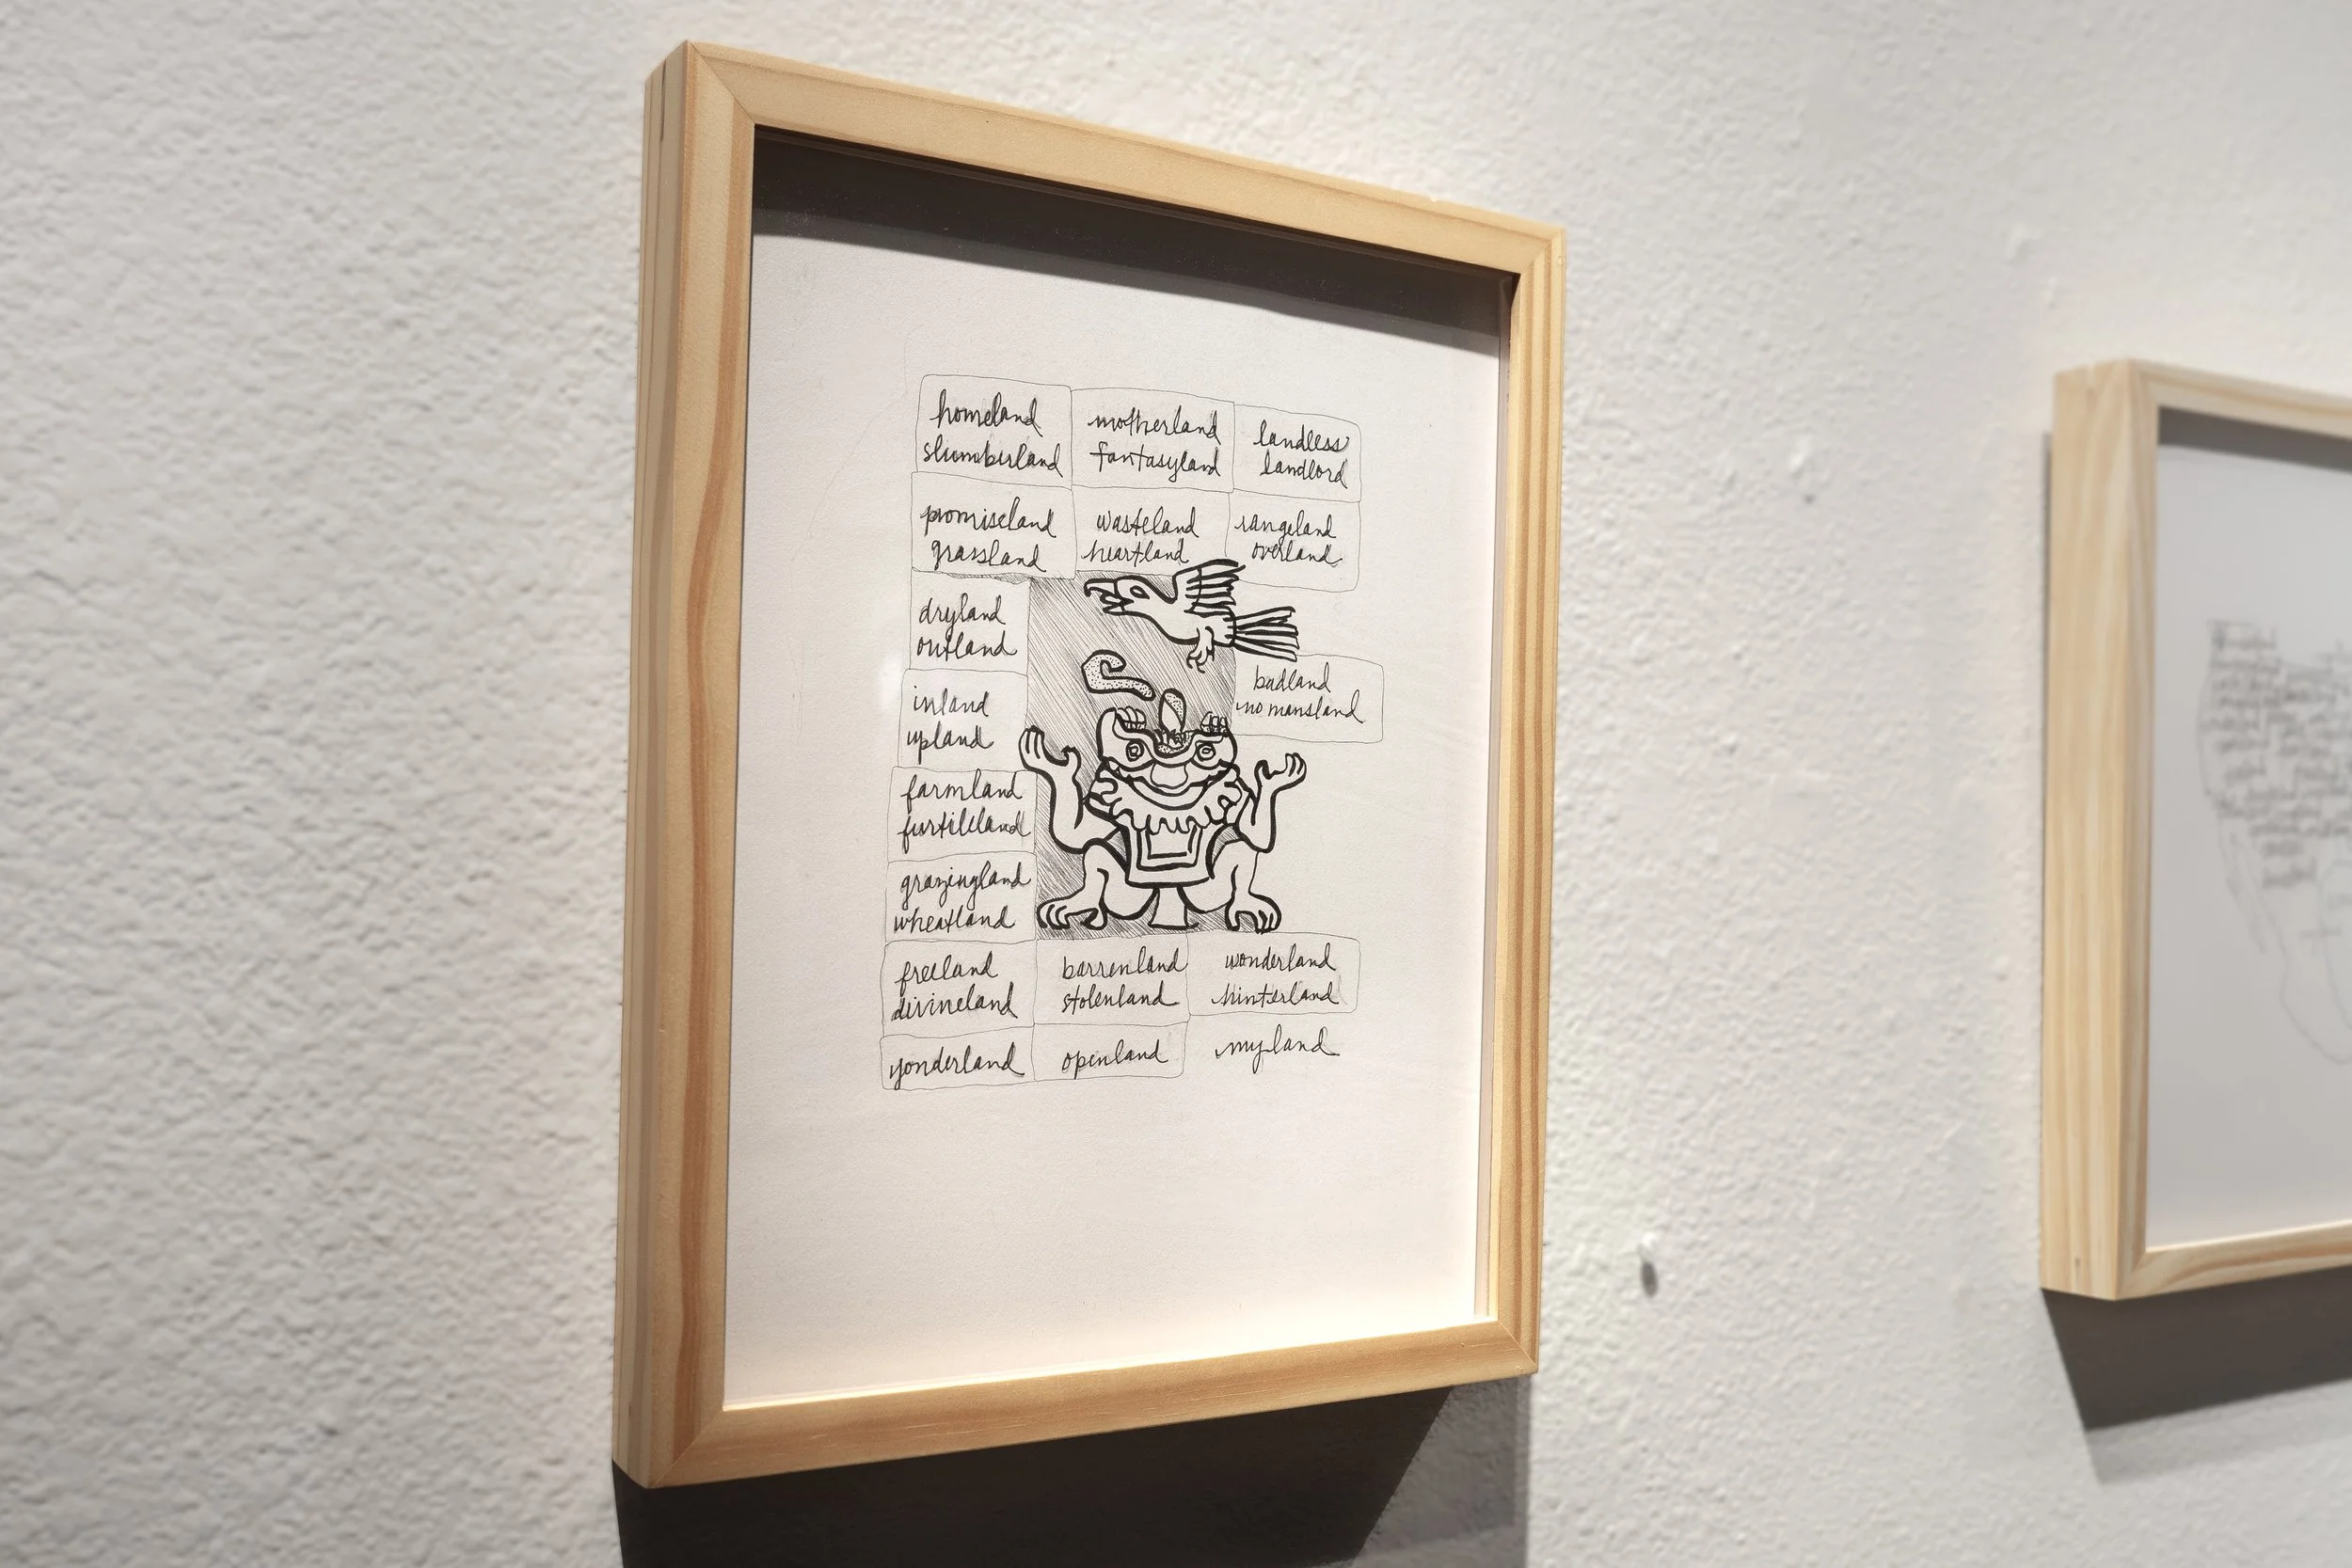 homeland
slumberland
motherland
fantasyland
landless
landlord
promiseland
grassland
wasteland
heartland
rangeland
overland
dryland
outland
badland
no mansland
inland
upland
farmland
furtileland
grazingland
wheatland
freeland
divineland
barrenland
stolenland
wonderland
hinterland
yonderland
openland
myland